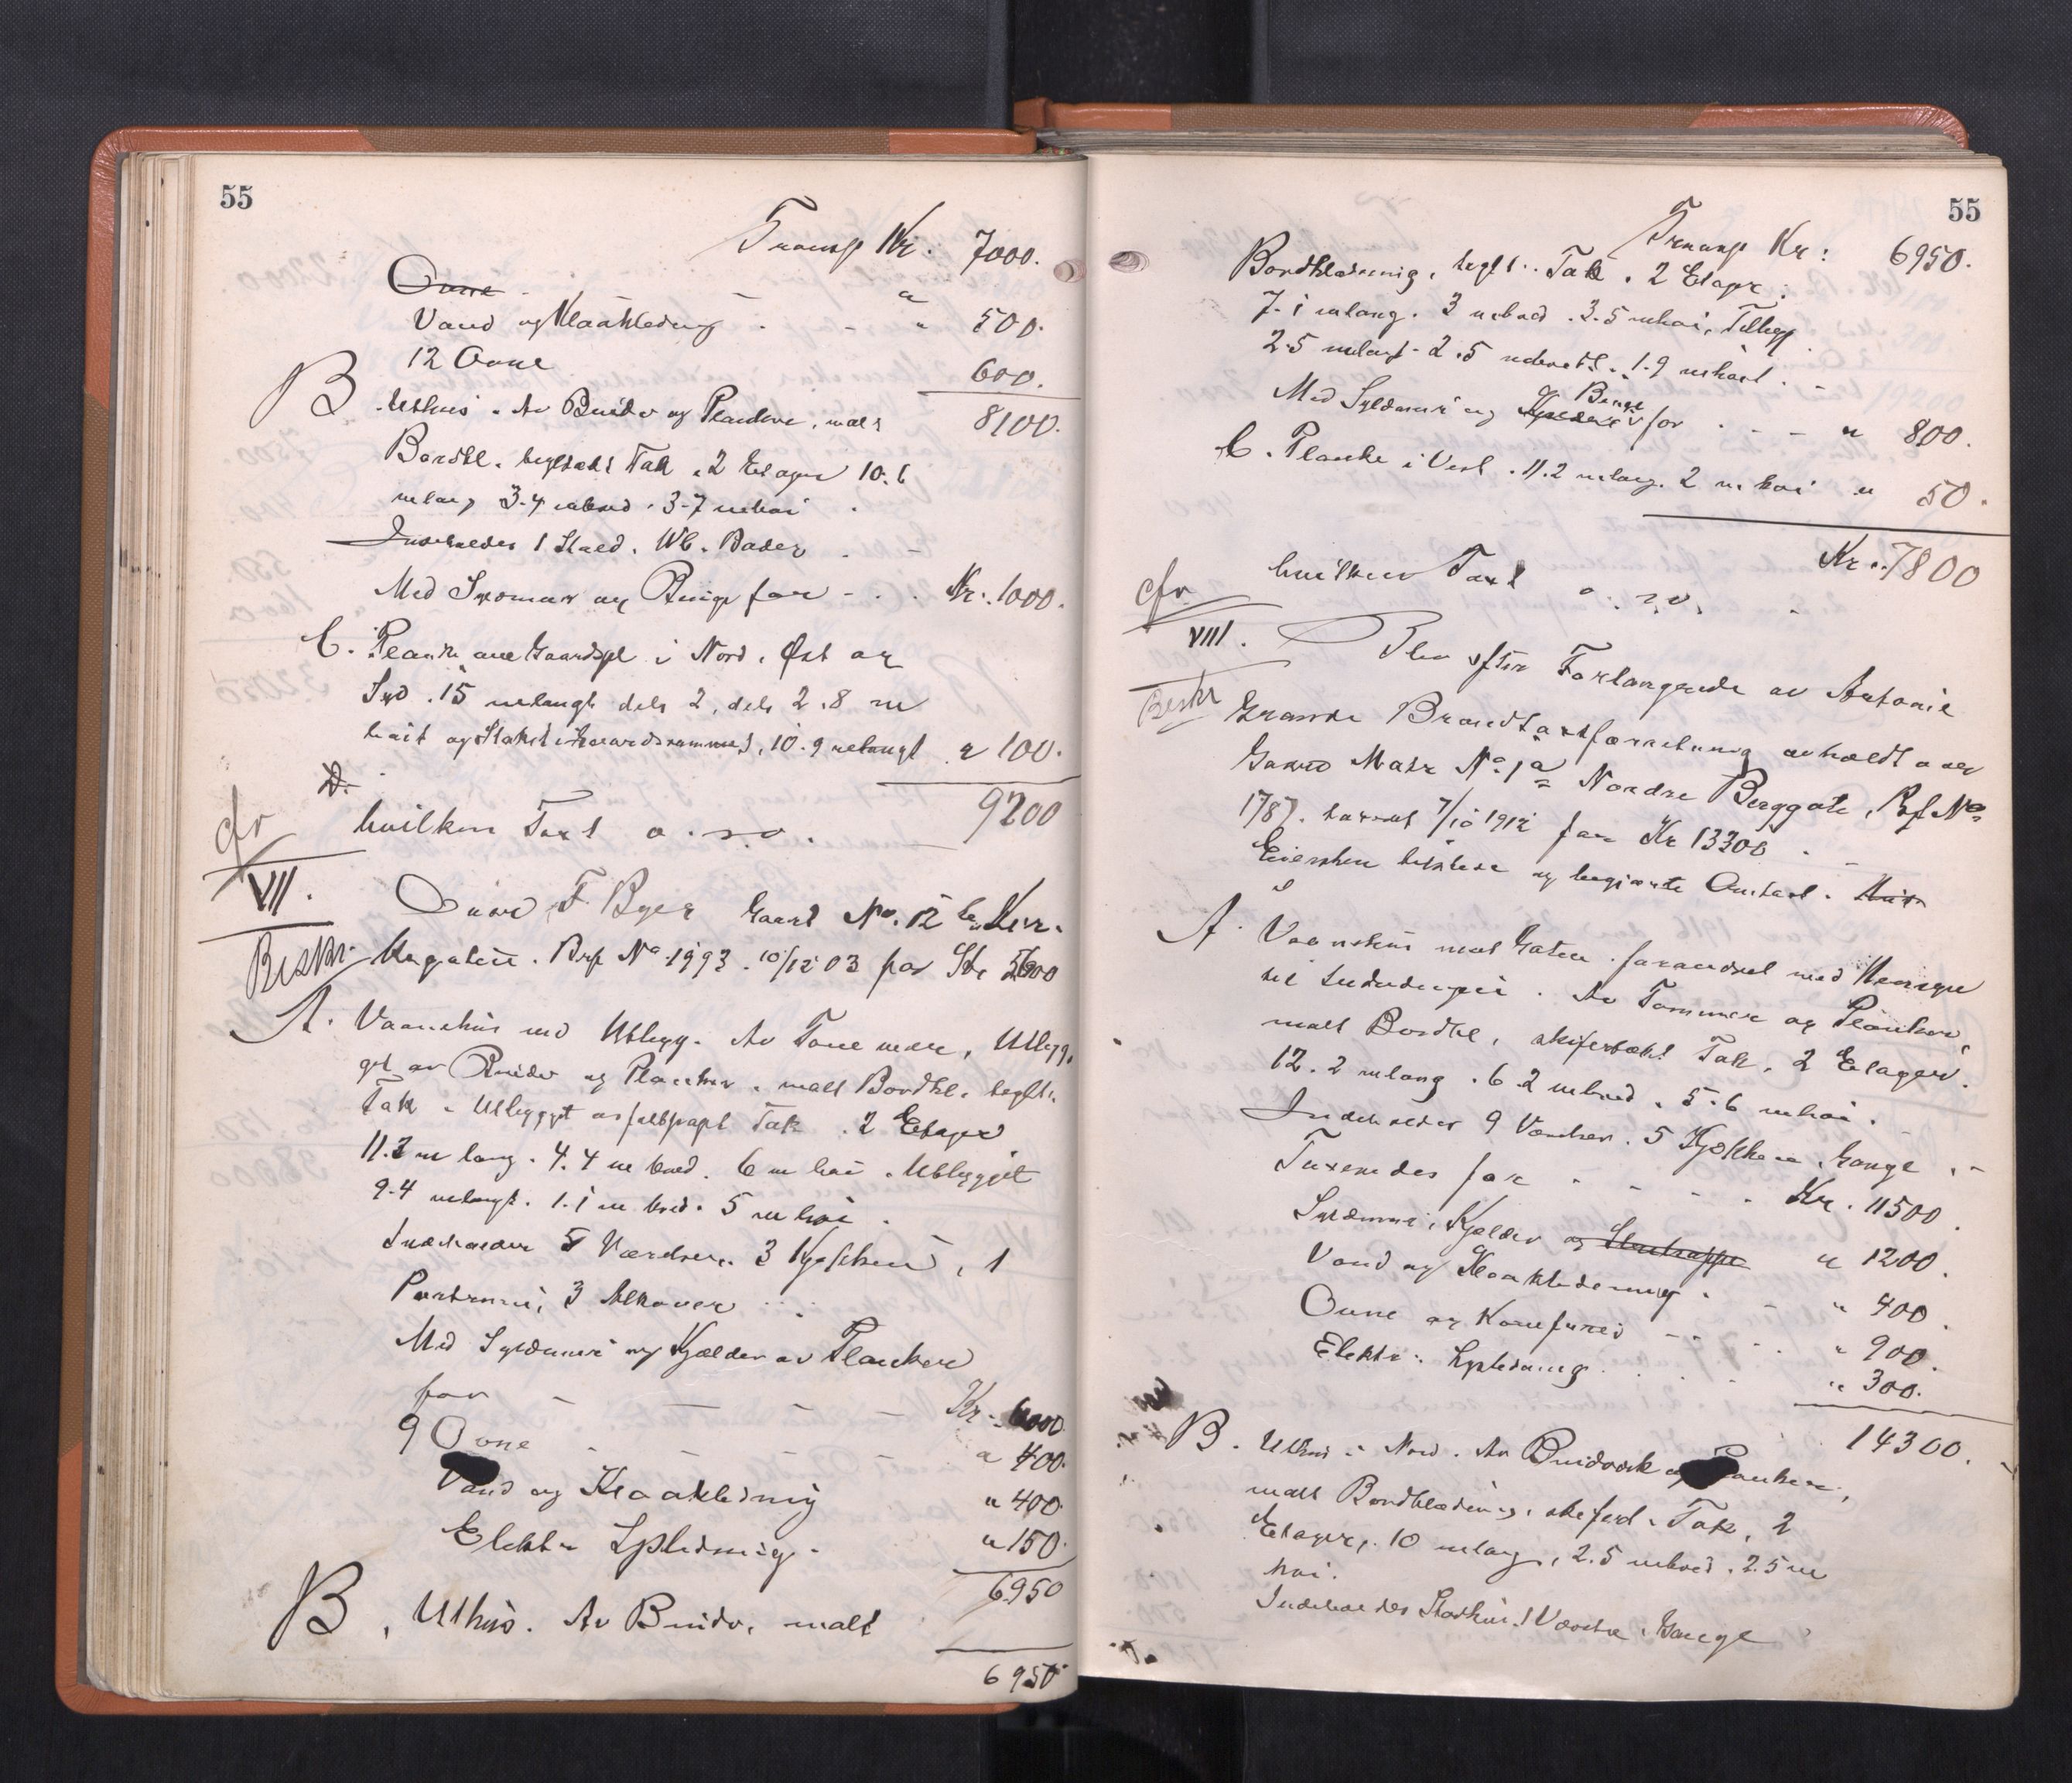 55
Transp Kr: 7000.
Ovne - - "
Vand og Kloakledning . - " 500.
12 Ovne 600.
B Uthus. Av Bindv og Planker, malt 8100.
Bordkl. teglstækt Tak. 2 Etager 10.6
m lang 3.4 m bred. 3.7 m høi .
Indeholder 1 Stald. Wc. Boder . -
Med og Binge for - . . Kr. 1000.
C. Plank om Gaardspl i Nord, Øst og
Syd. 15 m langt dels 2, dels 2.8 m
høit og Stakit i Gaardsrummet, 10.9 m langt " 100.
D.
hvilken Taxt o. s. v. 9200
cfr
VII. F Byer Gaard No. 12 Kir-
Beskr. kegaten. Brp No 1993. 10/12 03 for Kr
A. Vaanehus med Utbygg. Av Tømmer, Utbyg-
get av Bindv og Planker, malt Bordkl. teglt.
Tak. Utbygget asfaltpapt Tak. 2 Etager
11.3 m lang. 4.4 m bred. 6 m høi. Utbygget
9.4 m langt. 1.1 m bred. 5 m høi .
Indeholder 5 Værelser. 3 Kjøkkener, 1
Portrum, 3 Alkover . .
Med Syldmur og Kjælder av Planker
for - - - - Kr. 6000
9 Ovne - - - - " 400.
Vand og Kloakledning " 400.
Elektr Lysledning. " 150.
6950
B, Uthus. Av Bindv. malt
6950
55
Transp Kr: 6950.
Bordklædning, teglt. Tak. 2 Etager.
7.1 m lang. 3 m bred. 3.5 m høi, Tilbygg
2.5 m langt. 2.5 m bredt. 1.9 m høit. -
Binge
Med Syldmur og Kjælder for . - - " 800.
C. Planke i Vest. 11.2 m lang. 2 m høi " 50.
Kr. 7800
cfr hvilken Taxt o. s. v. -
VIII. Blev efter Forlangende av Antonie
Beskr Grande Brandtaxtforretning avholdt over
Gaard Matr No 1a Nordre Berggate, Brp No
1787. taxeret 7/10 1912 for Kr 13300 . -
Eiersken tilstede og begjærte Omtaxt.
A. Vaanehus mot Gaten. forandret med Hensyn
til Inddelingen. Av Tømmer og Planker,
malt Bordkl, skifertækt Tak. 2 Etager.
12.2 m lang. 6.2 m bred. 5.6 m høi. -
Indeholder 9 Værelser. 5 Kjøkkener, Gange . -
Taxeredes for . - - . Kr. 11500.
Syldmur, Kjælder og " 1200.
Vand og Kloakledning . - " 400.
Ovne og Komfurer - - . . " 900.
Elektr. Lysledning . . . - " 300.
14300.
B. Uthus i Nord. Av Bindværk og Planker,
malt Bordklædning, skiferd. Tak, 2
Etager, 10 m lang, 2.5 m bred. 2.5 m
høi.
Indeholder 1 Værelse, Gange